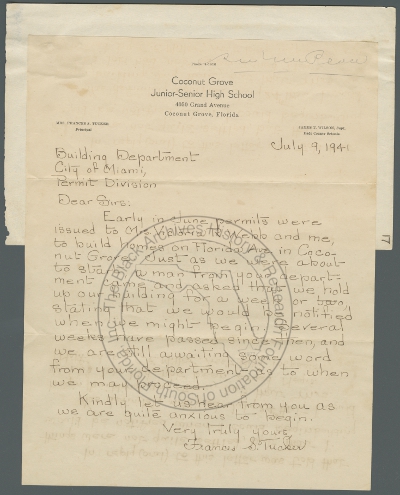 Coconut Grove
Junior-Senior High School
4350 Grand Avenue
Coconut Grove, Florida
Principal
July 9, 1941
Building Department
City of Miami,
Permit Division
Dear Sirs:
Early in June permits were
issued to and me,
to build homes on Florida Ave in Coco-
nut Grove. Just as we were about
to start, a man from your depart-
ment came and asked that we hold
up our building for a week or two,
stating that we would be notified
when we might begin. Several
weeks have passed since then, and
we are still awaiting some word
from your department as to when
we may proceed.
Kindly let us hear from you as
we are quite anxious to begin.
Very truly yours,
Francis S. Tucker
The Black Archives History & Research Foundation of South Florida